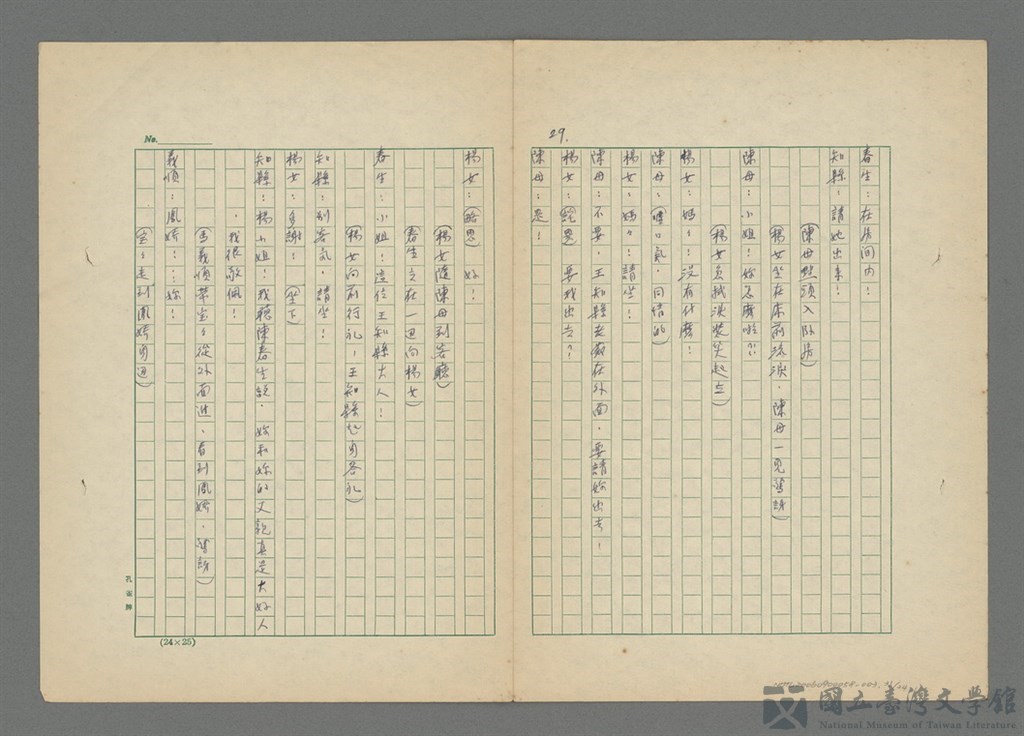 29.
春生：在房間内！
知縣：請她出來！
(陳母點頭入臥房)
(楊女坐在床前流淚，陳母一見驚訝)
陳母：小姐！妳怎麼啦？
(楊女员拭淚裝笑起立)
楊女：媽！沒有什麼！
陳母：(嘆口氣，同情的)
楊女：媽々！請坐！
陳母：不要，王知縣老爺在外面，要請妳出去！
楊女：(純異)要我出去？
陳母：是！
楊女：(略思)好！
(楊女隨陳母到客聽)
(春生立在一邊向楊女)
春生：小姐！這位王知縣大人！
(楊女向前行礼，王知縣起身答礼)
知縣：別客氣，請坐！
楊女：多謝！(坐下)
知縣：楊小姐！我聽陳春生說，妳和妳的丈親真是大好人
，我很敬佩！
(馬義慎帶宝々從外面進，看到鳳嬌，驚訝)
義慎：鳳嬌！…妳！
(宝々走到鳳嬌身邊)
No.
(24×25)
孔雀牌
國立臺灣文學館
National Museum of Taiwan Literature